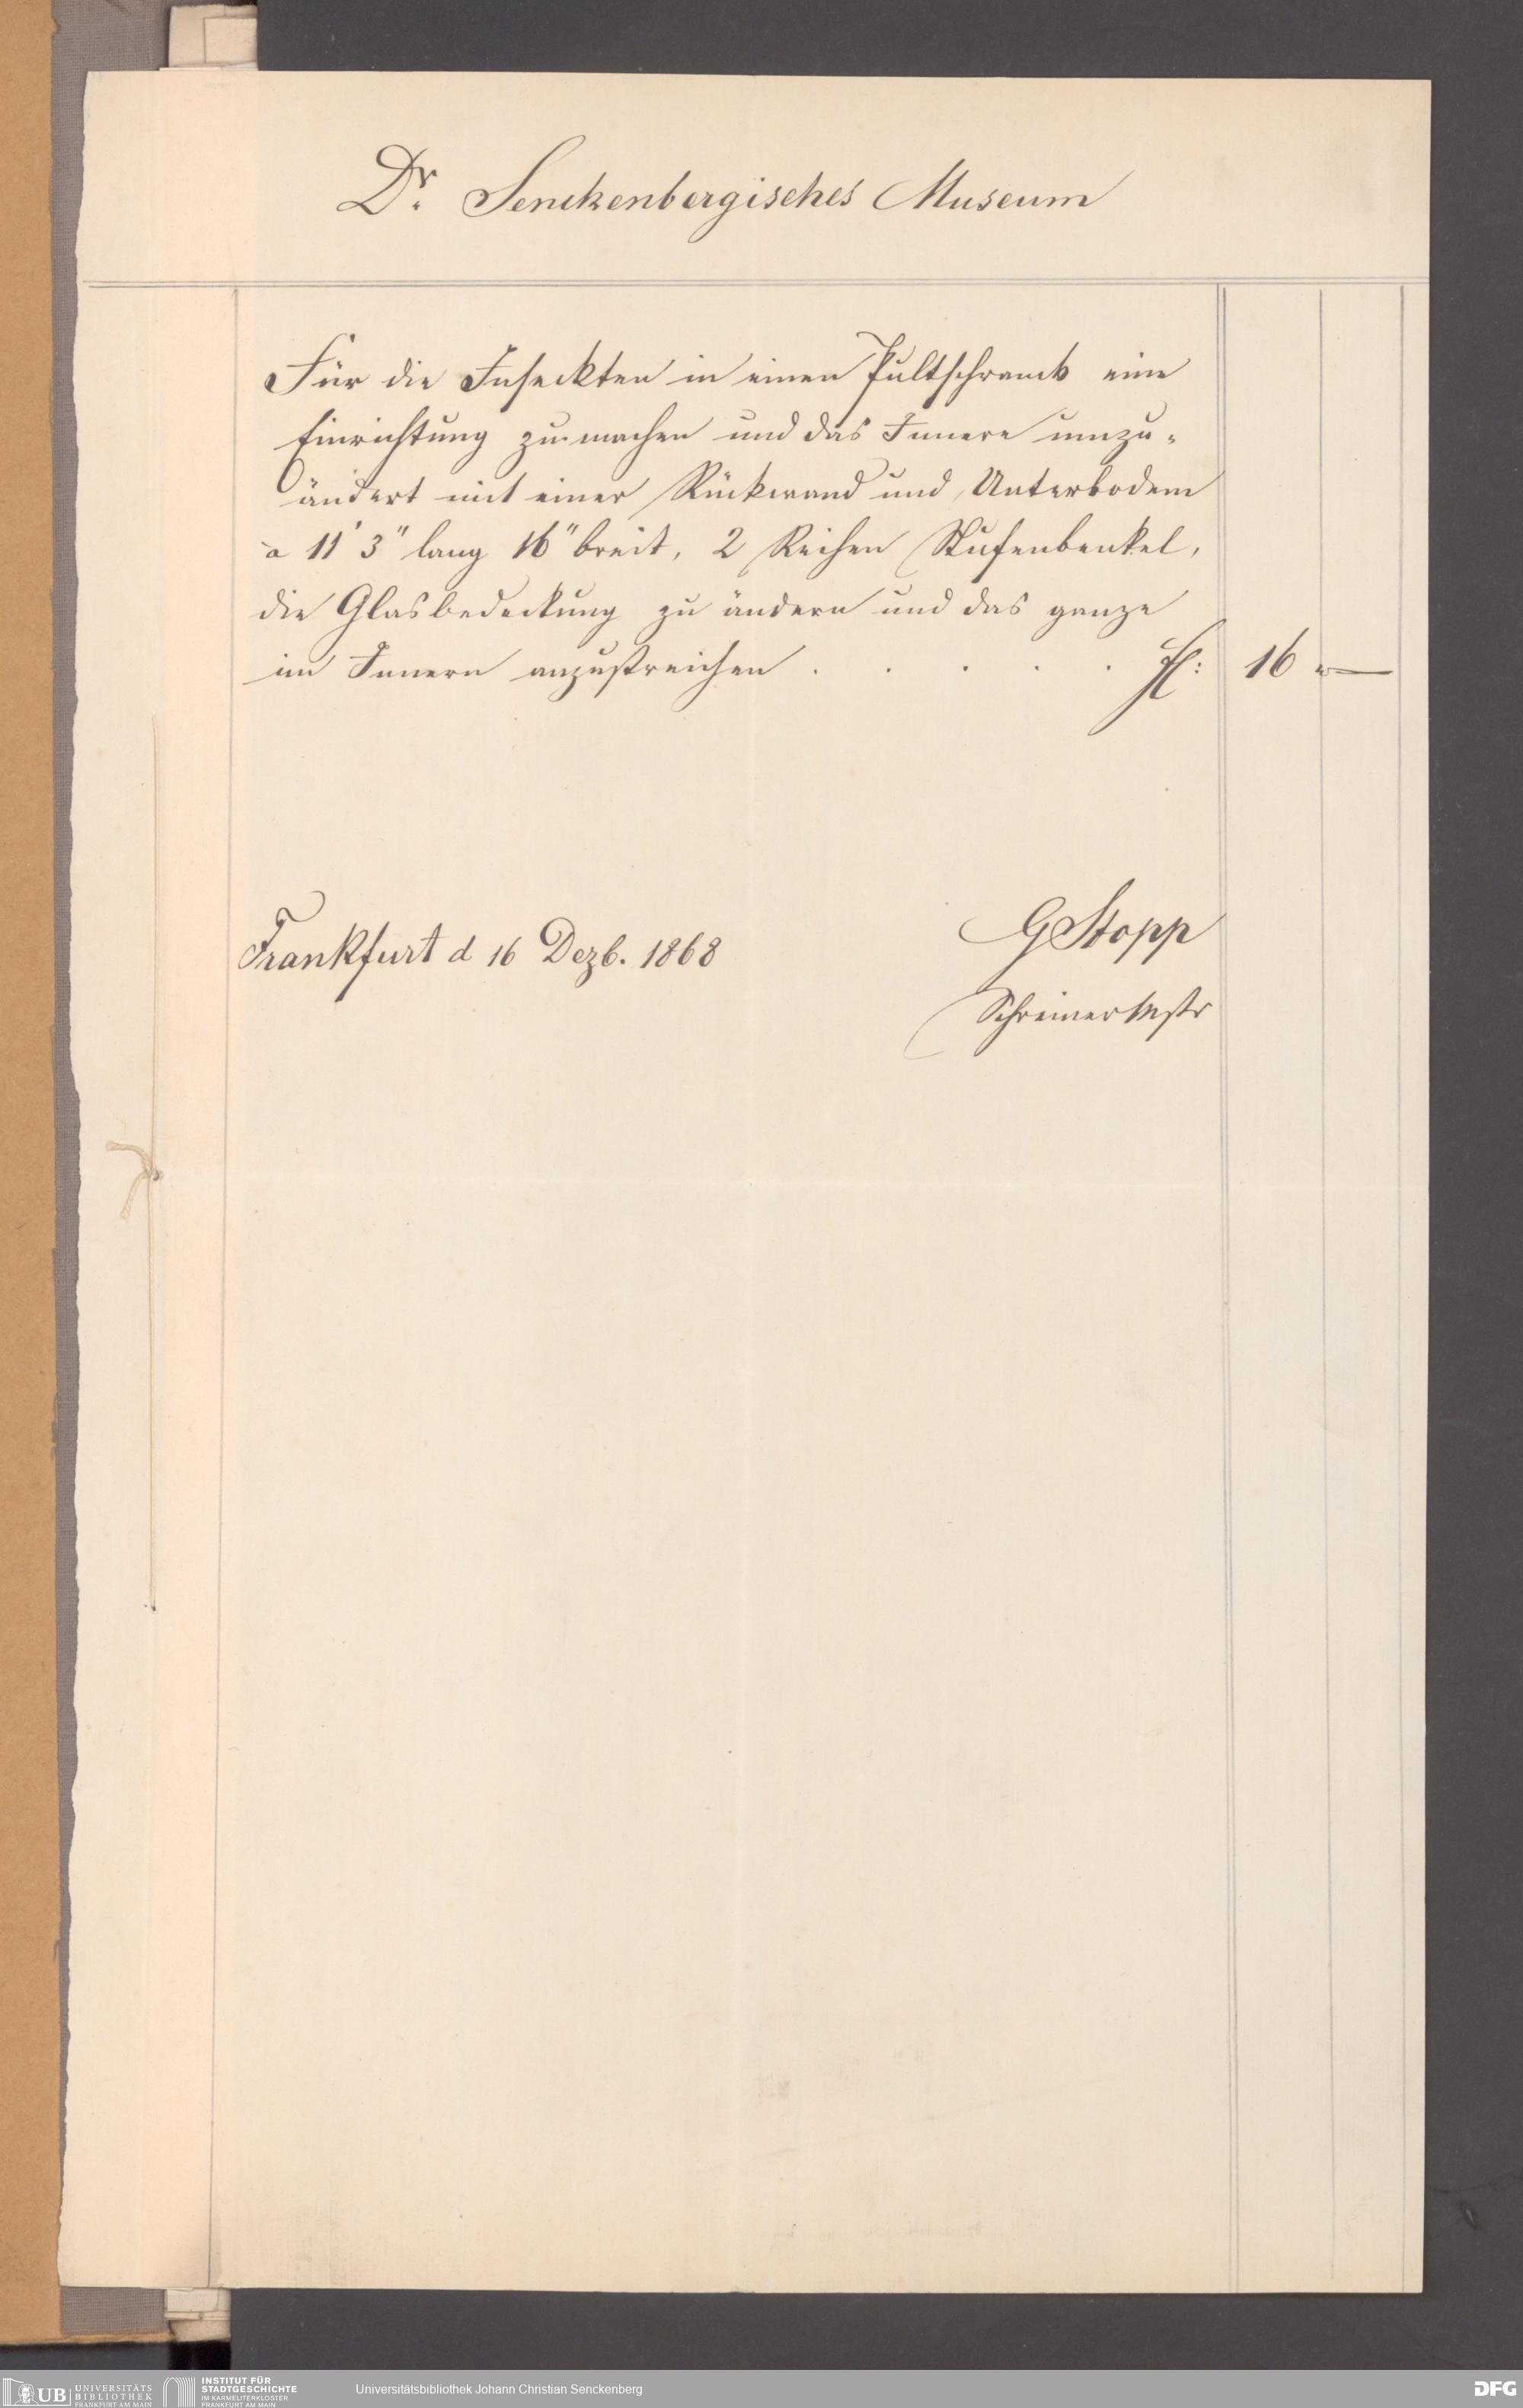 Dr. Senckenbergisches Museum
Für die Inseckten in einen Pultschranck eine
Einrichtung zu machen und das Innere umzu-
ändert mit einer Rückwand und Unterbodem
a 11' 3" lang 16" breit, 2 Reihen Stufenbenkel,
die Glasbedeckung zu ändern und das ganze
im Innern anzustreichen . . . . . fl: 16 "—
Frankfurt d 16 Dezb. 1868
G Stopp
Schreiner Mstr
UB UNIVERSITÄTS BIBLIOTHEK FRANKFURT AM MAIN
INSTITUT FÜR STADTGESCHICHTE IM KARMELITERKLOSTER FRANKFURT AM MAIN
Universitätsbibliothek Johann Christian Senckenberg
DFG